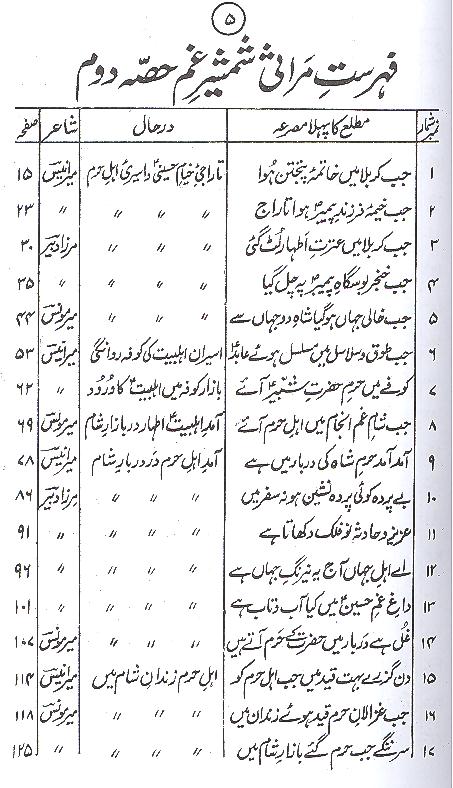 ۵
فہرستِ مراثی شمشیرِ غم حصہ دوم
نمبر شمار مطلع کا پہلا مصرعہ درحال شاعر صفحہ
۱ جب کربلا میں خاتمۂ پنجتن ہُوا تاراجیٔ خیامِ حسینیؑ و اسیریٔ اہلِ حرم میر انیسؔ ۱۵
۲ جب خیمۂ فرزندِ پیمبرؐ ہوا تاراج 〃 〃 〃 〃 ۲۳
۳ جب کربلا میں عترتِ اطہار لُٹ گئی 〃 〃 〃 مرزا دبیرؔ ۳۰
۴ جب خنجر بوسگاہِ پیمبرؐ پہ چل گیا 〃 〃 〃 〃 ۳۵
۵ جب خالی جہاں ہو گیا شاہِ دو جہاں سے 〃 〃 〃 میر مونسؔ ۴۴
۶ جب طوق و سلاسل میں مسلسل ہوئے عابدؑ اسیرانِ اہلبیت کی کوفہ روانگی میر انیسؔ ۵۳
۷ کوفے میں حرمِ حضرتِ شبیرؑ آئے بازارِ کوفہ میں اہلبیتؑ کا ورُود 〃 ۶۲
۸ جب شامِ غم انجام میں اہلِ حرم آئے آمد اہلبیتؑ اطہار در بازارِ شام میر مونسؔ ۶۹
۹ آمد آمد حرمِ شاہ کی دربار میں ہے آمدِ اہلِ حرم در دربارِ شام میر انیسؔ ۷۸
۱۰ بے پردہ کوئی پردہ نشین ہو نہ سفر میں 〃 〃 〃 مرزا دبیرؔ ۸۶
۱۱ عزیزو حادثۂ نو فلک دکھاتا ہے 〃 〃 〃 〃 ۹۱
۱۲ اے اہلِ جہاں آج یہ نیرنگِ جہاں ہے 〃 〃 〃 〃 ۹۶
۱۳ داغِ غمِ حسینؑ میں کیا آب و تاب ہے 〃 〃 〃 〃 ۱۰۱
۱۴ غُل ہے دربار میں حضرت کے حرم آتے ہیں 〃 〃 〃 میر مونسؔ ۱۰۷
۱۵ دن گزرے بہت قید میں جب اہلِ حرم کو اہلِ حرم زندانِ شام میں میر انیسؔ ۱۱۴
۱۶ جب غزالانِ حرم قید ہوئے زنداں میں 〃 〃 〃 میر مونسؔ ۱۱۸
۱۷ سر ننگے جب حرم گئے بازارِ شام میں 〃 〃 〃 〃 ۱۲۵